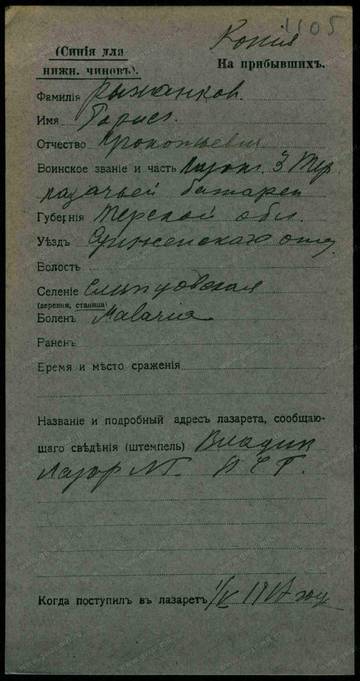 1105
Копія
(Синія для
нижн. чиновъ).
На прибывшихъ.
Фамилія Рыжанков
Имя Борис
Отчество Прокопьевич
Воинское званіе и часть 3 Тер.
казачьей батареи
Губернія Терской обл.
Уѣздъ Сунженскаго отд.
Волость
Селеніе Слепцовская
(деревня, станица)
Боленъ Malaria
Раненъ
Время и мѣсто сраженія
Названіе и подробный адресъ лазарета, сообщаю-
щаго свѣдѣнія (штемпель) Владик
Лазар
Когда поступилъ въ лазаретъ 1/V 1917 году